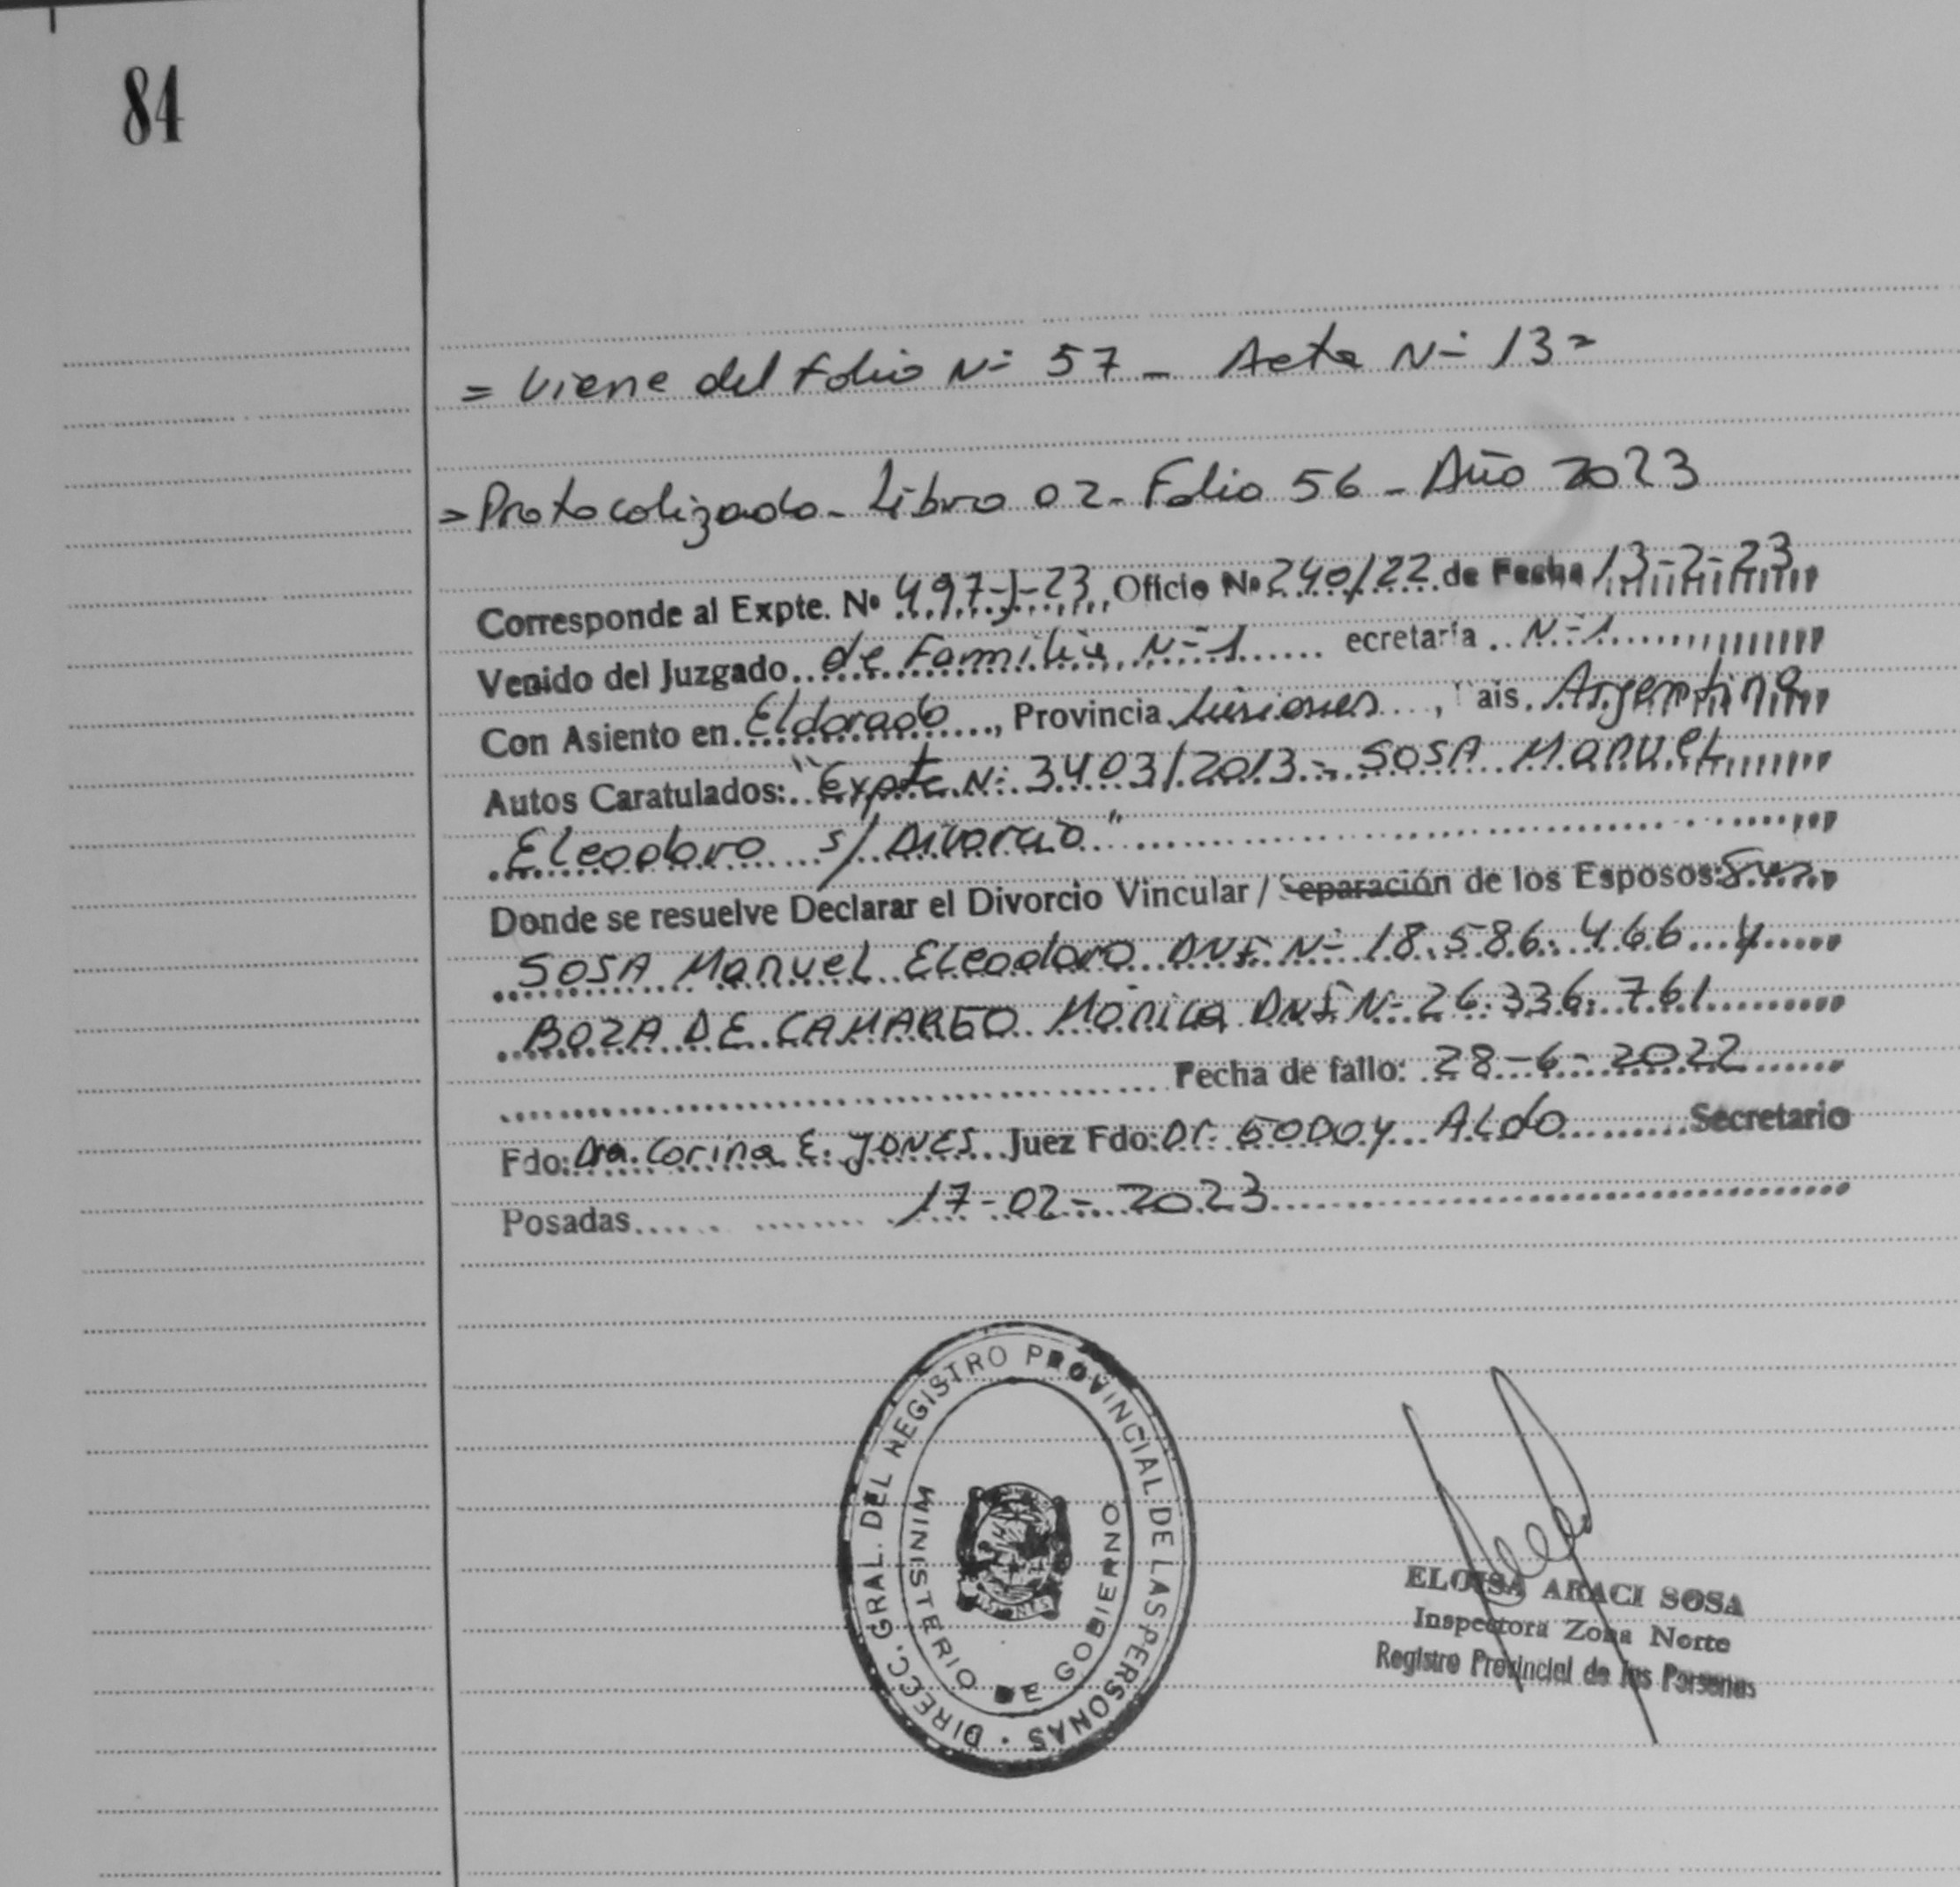 84
= Viene del folio Nº 57 - Acta Nº 13 =
= Protocolizado - Libro 02 - Folio 56 - Año 2023
Corresponde al Expte. Nº 497-J-23, Oficio Nº 240/22 de Fecha 13-2-23
Venido del Juzgado de Familia Nº 1 ecretaría Nº 1
Con Asiento en Eldorado, Provincia Misiones, ais Argentina
Autos Caratulados: "Expte Nº 3403/2013 - SOSA Manuel
Eleodoro s/ Divorcio"
Donde se resuelve Declarar el Divorcio Vincular / Separación de los Esposos:
SOSA Manuel Eleodoro DNI Nº 18.586.466 y
BOZA DE CAMARGO Mónica DNI Nº 26.336.761
Fecha de fallo: 28-6-2022
Fdo: Dra. Corina E. JONES Juez Fdo: Dr. GODOY Aldo Secretario
Posadas 17-02-2023
DIRECC. GRAL. DEL REGISTRO PROVINCIAL DE LAS PERSONAS
MINISTERIO DE GOBIERNO
ELOISA ARACI SOSA
Inspectora Zona Norte
Registro Provincial de las Personas